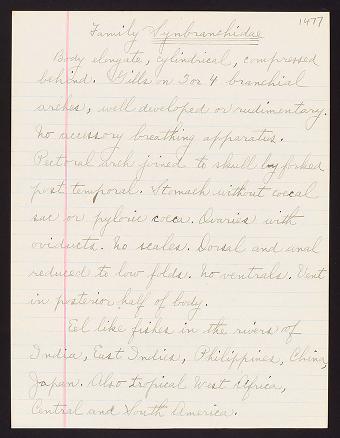 1477
Family Synbranchidae
Body elongate, cylindrical, compressed
behind. Gills on 3 or 4 branchial
arches, well developed or rudimentary.
No accissory breathing apparatus.
Pectoral arch joined to skull by forked
post temporal. Stomach without coecal
sac or pyloric coeca. Ovaries with
oviducts. No scales. Dorsal and anal
reduced to low folds. No ventrals. Vent
in posterior half of body.
Eel like fishes in the rivers of
India, East Indies, Philippines, China,
Japan. Also tropical West Africa,
Central and South America.